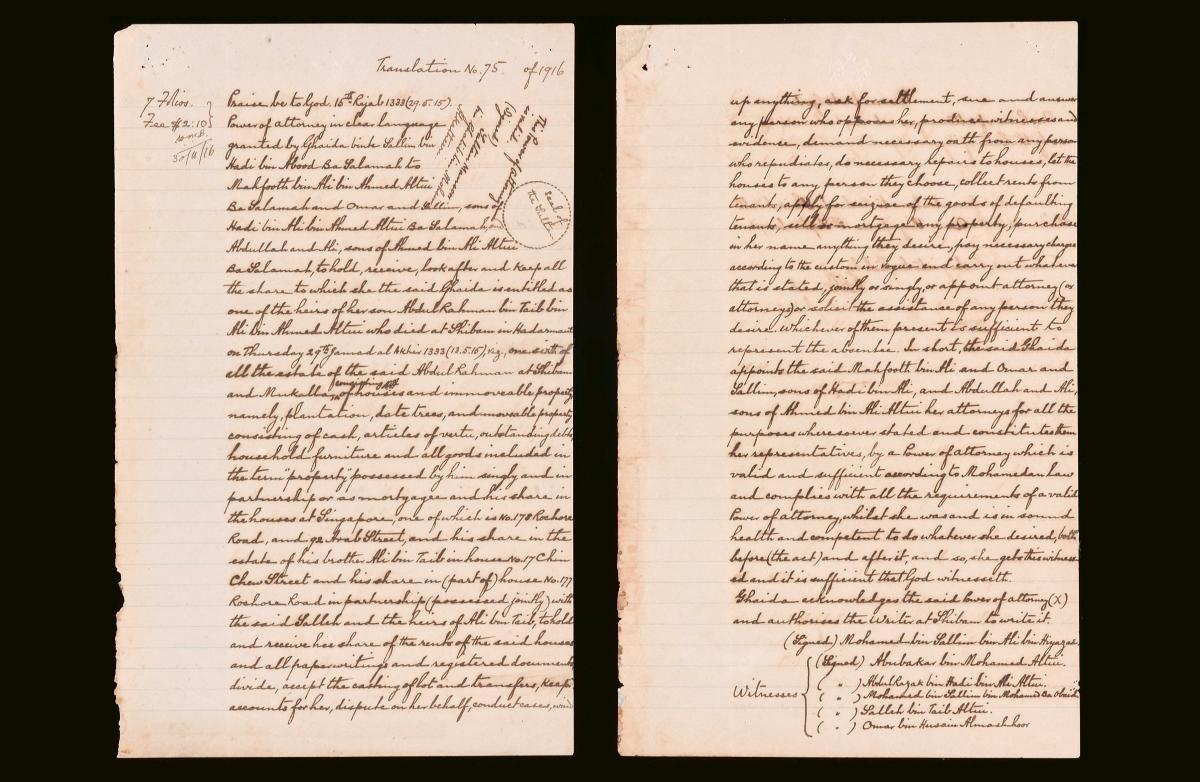 Translation No. 75. of 1916
7 Folios.
Fee $2:10
30/11/16
Praise be to God. 15th Rejab 1333 (29.5.15).
Power of attorney in clear language
granted by Ghaida binte Sallim bin
Hadi bin Abood Ba Salamah to
Mahfooth bin Ali bin Ahmed Altui
Ba Salamah and Omar and Sallim, sons of
Hadi bin Ali bin Ahmed Altui Ba Salamah,
Abdullah and Ali, sons of Ahmed bin Ali Altui
Ba Salamah, to hold, receive, look after and keep all
the share to which she the said Ghaida is entitled as
one of the heirs of her son Abdul Rahman bin Taib bin
Ali bin Ahmed Altui who died at Shibam in Hadarmaut
on Thursday 29th Jamad al Akhir 1333 (13.5.15), viz., one sixth of
all the estate of the said Abdul Rahman at Shibam
and Mukalla, consisting of houses and immoveable property
namely, plantation, date trees, and moveable property
consisting of cash, articles of vertu, outstanding debts,
household furniture and all goods included in
the term "property" possessed by him singly and in
partnership or as mortgagee and his share in
the houses at Singapore, one of which is No. 178 Rochore
Road, and 92 Arab Street, and his share in the
estate of his brother Ali bin Taib in house No. 17 Chin
Chew Street and his share in (part of) house No. 177
Rochore Road in partnership (possessed jointly) with
the said Salleh and the heirs of Ali bin Taib, to hold
and receive her share of the rents of the said houses
and all paper writings and registered documents
divide, accept the casting of lot and transfers, keep
accounts for her, dispute on her behalf, conduct cases, wind
This Power of attorney is
(Signed)
Seal of
the Sultan
up anything, ask for settlement, sue and answer
any person who opposes her, produce witnesses and
evidence, demand necessary oath from any person
who repudiates, do necessary repairs to houses, let the
houses to any person they choose, collect rents from
tenants, apply for seizure of the goods of defaulting
tenants, sell or mortgage any property, purchase
in her name anything they desire, pay necessary charges
according to the custom in vogue and carry out whatever
that is stated, jointly or singly, or appoint attorney (or
attorneys) or solicit the assistance of any person they
desire. Whichever of them present is sufficient to
represent the absentee. In short, the said Ghaida
appoints the said Mahfooth bin Ali and Omar and
Sallim, sons of Hadi bin Ali, and Abdullah and Ali,
sons of Ahmed bin Ali Altui her attorneys for all the
purposes wheresoever stated and constitutes them
her representatives, by a Power of attorney which is
valid and sufficient according to Mohamedan law
and complies with all the requirements of a valid
Power of attorney, whilst she was and is in sound
health and competent to do whatever she desired, both
before (the act) and after it, and so, she gets this witness-
ed and it is sufficient that God witnesseth.
Ghaida acknowledges the said Power of attorney (X)
and authorises the writer at Shibam to write it.
(Signed) Mohamed bin Sallim bin Ali bin
Witnesses
(Signed) Abubakar bin Mohamed Altui.
( " ) Abdul Razak bin Hadi bin Ali Altui.
( " ) Mohamed bin Sallim bin Mohamed Ba Obaid
( " ) Salleh bin Taib Altui.
( " ) Omar bin Husain Almashhoor